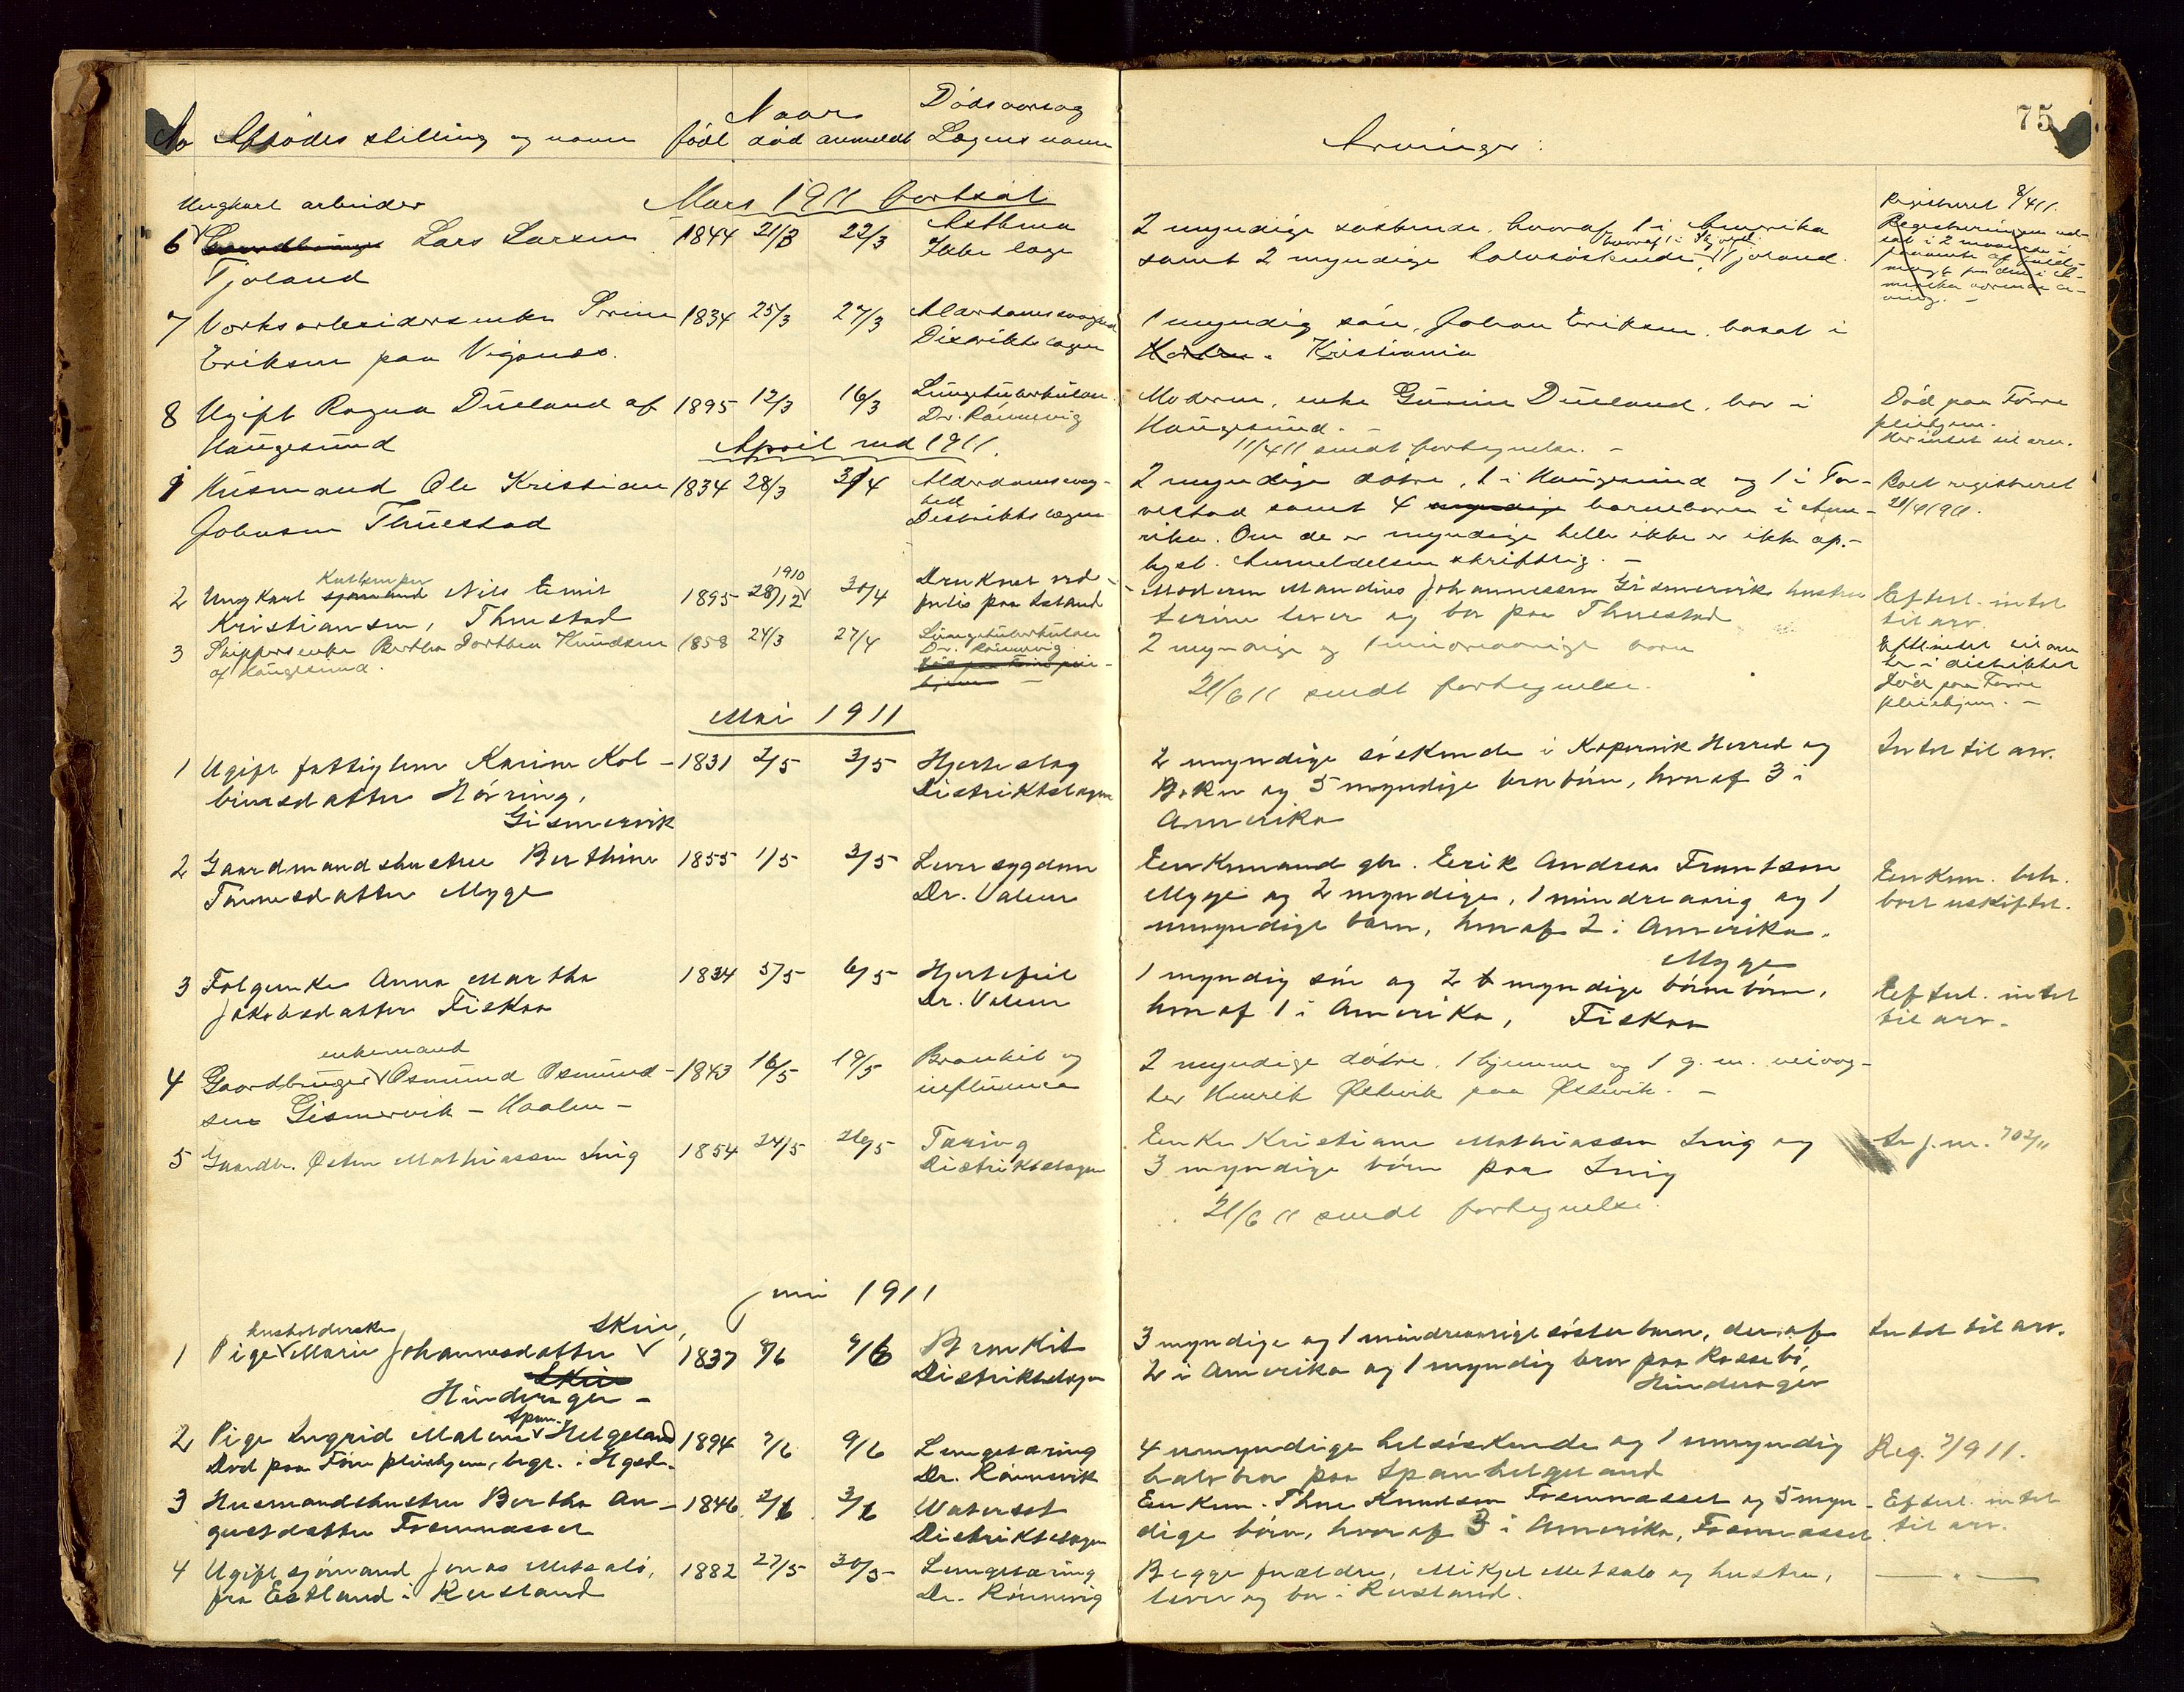 75
No Afdødes stilling og navn Naar født død anmeldt Dødsaarsag Lægens navn Arvinger:
Mars 1911 fortsat
Ungkarl arbeider
6 Lars Larsen 1844 21/3 22/3 Asthma 2 myndige søskende, hvoraf 1 i Amerika Registreret 8/4 11.
Tjoland Ikke læge samt 2 myndige halvsøskende, Tjoland.
7 Verksarbeidersenke Serine 1834 25/3 27/3 Alderdomssvaghed 1 myndig søn, Johan Eriksen, bosat i
Eriksen paa Vigsnæs. Distriktslægen Kristiania
8 Ugift Ragna Dueland af 1895 12/3 16/3 Lungetuberkulose Moderen, enke Gurine Dueland, bor i Død paa Førre
Haugesund Dr. Rønnevig Haugesund. - pleiehjem.
11/4 11 sendt fortegnelse. - Her intet til arv.
April md 1911.
1 Husmand Ole Kristian 1834 28/3 3/4 Alderdomssvag- 2 myndige døtre, 1 i Haugesund og 1 i Tor- Boet registreret
Johnsen Thuestad hed vestad samt 4 barnebarn i Ame- 21/4 1911.
Distriktslægen rika. Om de er myndige eller ikke er ikke op-
lyst. Anmeldelsen skriftlig. -
2 Ungkarl Nils Emil 1895 28/12 1910 30/4 Druknet ved Moderen Mandius Johannessen Gismerviks hustru Efterl. intet
Kristiansen, Thuestad forlis paa Island lever og bor paa Thuestad til arv.
3 Skippersenke Bertha Dorthea Knudsen 1858 24/3 27/4 Lungetuberkulose 2 myndige og 1 mindreaarige barn Efterl. intet til arv
af Haugesund. Dr. Rønnevig 21/6 11 sendt fortegnelse. her i distriktet
Død paa Førre
pleiehjem. -
Mai 1911
1 Ugift fattiglem Karine Kol- 1831 2/5 3/5 Hjerteslag 2 myndige søskende i Kopervik Herred og Intet til arv.
beinsdatter Høvring, Distriktslægen Bokn og 5 myndige brorbørn, hvoraf 3 i
Gismervik Amerika
2 Gaardmandshustru Berthine 1855 1/5 3/5 Leversygdom Enkemand gbr. Erik Andreas Frantsen Enkem. beh.
Tønnesdatter Mygge Dr. Valeur Mygge og 2 myndige, 1 mindreaarig og 1 boet uskiftet.
umyndige børn, hvoraf 2 i Amerika.
Mygge
3 Folgeenke Anna Martha 1834 5/5 6/5 Hjertefeil 1 myndig søn og 2 myndige børnebørn, Efterl. intet
Jakobsdatter Fiskaa Dr. Valeur hvoraf 1 i Amerika, Fiskaa til arv.
enkemand
4 Gaardbruger Osmund Osmund- 1843 16/5 19/5 Bronkit og 2 myndige døtre, 1 hjemme og 1 g.m. veivog-
sen Gismervik - Haalen - influensa ter Henrik Østevik paa Østevik. -
5 Gaardbr. Østen Mathiassen Snig 1854 24/5 26/5 Tæring Enke Kristiane Mathiassen Snig og Se j.nr. 702/11
Distriktslægen 3 myndige børn paa Snig
21/6 11 sendt fortegnelse.
Juni 1911
husholderske Skeie,
1 Pige Marie Johannesdatter 1837 9/6 Bronkit 3 myndige og 1 mindreaarige søsterbarn, deraf Intet til arv.
Hinderager - Distriktslægen 2 i Amerika og 1 myndig bror paa Røssebø,
Hinderager
2 Pige Ingrid Malene Span- Helgeland 1894 7/6 9/6 Lungetæring 4 umyndige helsøskende og 1 umyndig Reg. 7/9 11.
Død paa Førre pleiehjem, begr. i Hgsd. Dr. Rønnevik halvbror paa Spanhelgeland
3 Husmandshustru Bertha Au- 1846 2/6 3/6 Watersot Enkem. Thore Knudsen Fosennæsset og 5 myn- Efterl. intet
gustdatter Fosennæsset Distriktslægen dige børn, hvoraf 3 i Amerika, Fosennæsset. til arv.
4 Ugift sjømand Jonas Metsalo, 1882 27/5 30/5 Lungetæring Begge forældre, Mikjel Metsalo og hustru, — " —
fra Estland i Rusland Dr. Rønnevig lever og bor i Rusland.